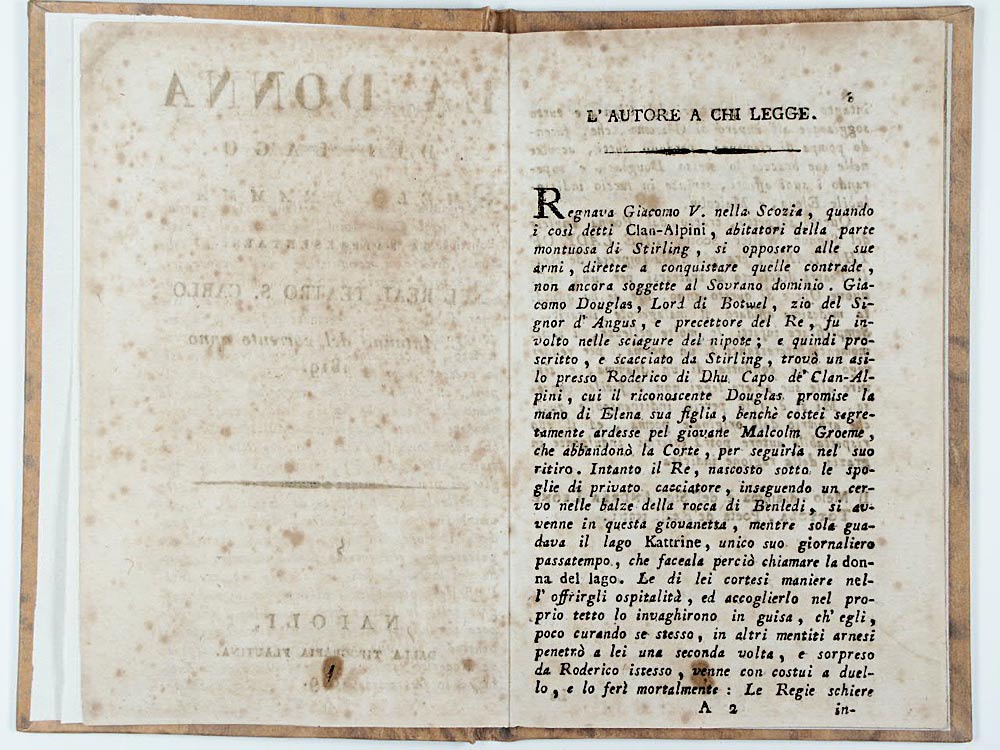 LA DONNA
DEL LAGO
REAL TEATRO S. CARLO
1819.
NAPOLI,
DALLA TIPOGRAFIA FLAUTINA.
3
L' AUTORE A CHI LEGGE.
Regnava Giacomo V. nella Scozia, quando
i così detti Clan-Alpini, abitatori della parte
montuosa di Stirling, si opposero alle sue
armi, dirette a conquistare quelle contrade,
non ancora soggette al Sovrano dominio. Gia-
como Douglas, Lord di Botwel, zio del Si-
gnor d' Angus, e precettore del Re, fu in-
volto nelle sciagure del nipote; e quindi pro-
scritto, e scacciato da Stirling, trovò un asi-
lo presso Roderico di Dhu Capo de' Clan-Al-
pini, cui il riconoscente Douglas promise la
mano di Elena sua figlia, benchè costei segre-
tamente ardesse pel giovane Malcolm Groeme,
che abbandonò la Corte, per seguirla nel suo
ritiro. Intanto il Re, nascosto sotto le spo-
glie di privato cacciatore, inseguendo un cer-
vo nelle balze della rocca di Benledi, si av-
venne in questa giovanetta, mentre sola gua-
dava il lago Kattrine, unico suo giornaliero
passatempo, che faceala perciò chiamare la don-
na del lago. Le di lei cortesi maniere nel-
l' offrirgli ospitalità, ed accoglierlo nel pro-
prio tetto lo invaghirono in guisa, ch' egli,
poco curando se stesso, in altri mentiti arnesi
penetrò a lei una seconda volta, e sorpreso
da Roderico istesso, venne con costui a duel-
lo, e lo ferì mortalmente : Le Regie schiere
A 2 in-